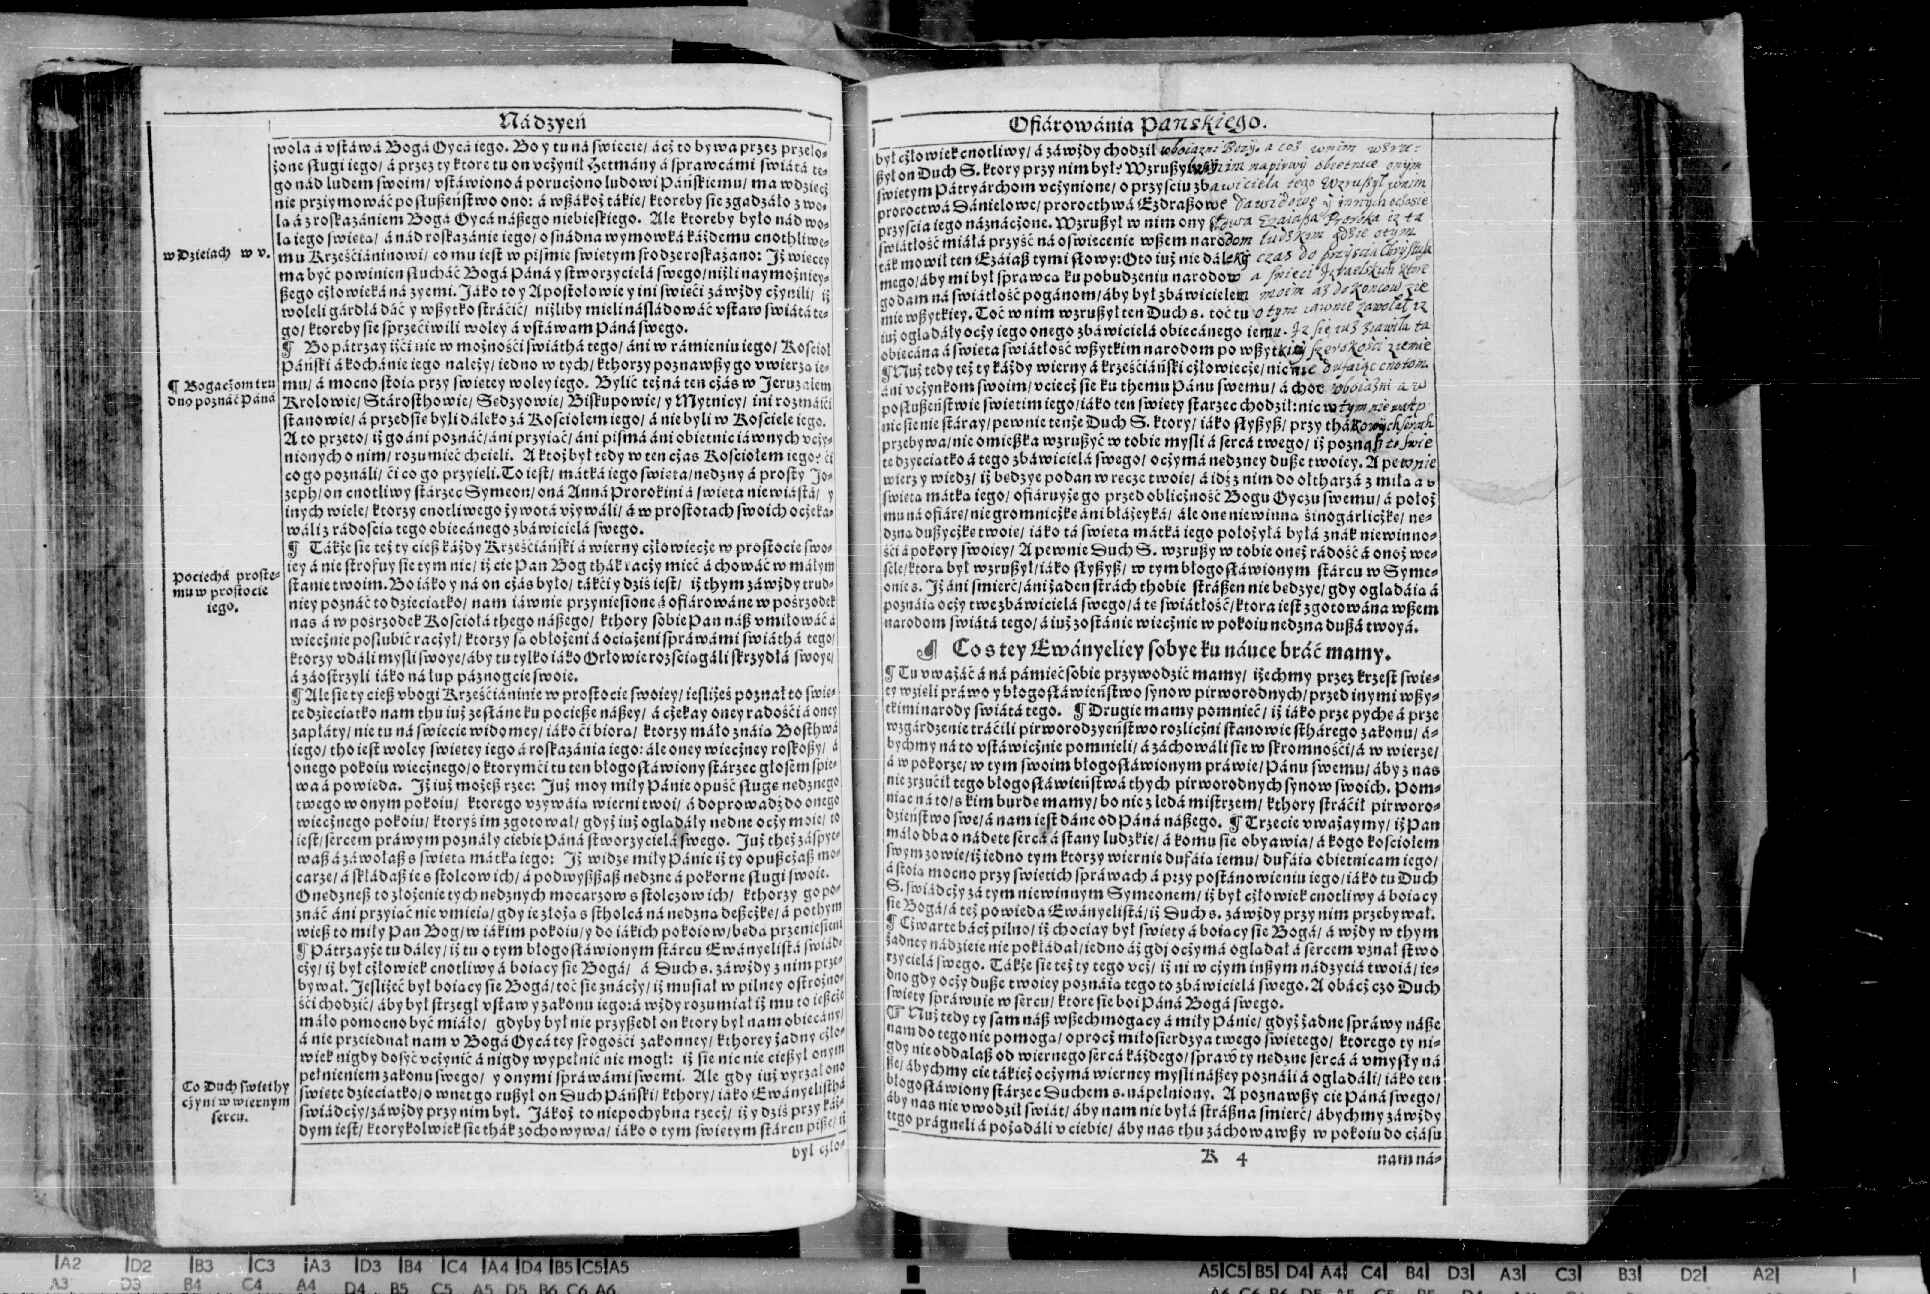 Nádzyeń
wola á vstáwá Bogá Oycá iego. Bo y tu ná swiecie/ ácż to bywa przez przeło-
żone sługi iego/ á przez ty ktore tu on vcżynił Hetmány á sprawcámi świátá te-
go nád ludem swoim/ vstáwiono á porucżono ludowi Páńskiemu/ ma wdzięcż
nie prziymowáć posłußeństwo ono: á wßákoż tákie/ ktoreby sie zgadzáło z wo-
lą á z roskazániem Bogá Oycá náßego niebieskiego. Ale ktoreby było nád wo-
lą iego świętą/ á nád roskazánie iego/ o snádna wymowká káżdemu cnothliwe-
w Dzieiach w v.
mu Krześćiáninowi/ co mu iest w pismie świętym srodze roskazano: Iż więcey
ma być powinien słucháć Bogá Páná y stworzycielá swego/ niżli naymożniey-
ßego cżłowieká ná zyemi. Jáko to y Apostołowie y ini święći záwżdy cżynili/ iż
woleli gárdłá dáć y wßytko stráćić/ niżliby mieli násládowáć vstaw świátá te-
go/ ktoreby sie sprzeciwili woley á vstáwam Páná swego.
¶ Bo pátrzay iżći nie w możnośći świáthá tego/ áni w rámieniu iego/ Kościoł
Páński á kochánie iego należy/ iedno w tych/ kthorzy poznawßy go vwierzą ie-
¶ Bogacżom tru
dno poznáć Páná
mu/ á mocno stoią przy świętey woley iego. Bylić też ná ten cżás w Jeruzalem
Krolowie/ Stárosthowie/ Sędzyowie/ Biskupowie/ y Mytnicy/ ini rozmáići
stanowie/ á przedsię byli dáleko zá Kościołem iego/ á nie byli w Kościele iego.
A to przeto/ iż go áni poznáć/ áni przyiąć/ áni pismá áni obietnic iáwnych vcży-
nionych o nim/ rozumieć chcieli. A ktoż był tedy w ten cżás Kościołem iego? ći
co go poználi/ ći co go przyięli. To iest/ mátká iego święta/ nędzny á prosty Jo-
zeph/ on cnotliwy stárzec Symeon/ oná Anná Prorokini á święta niewiástá/ y
inych wiele/ ktorzy cnotliwego żywotá vżywáli/ á w prostotach swoich ocżeká-
wáli z rádością tego obiecánego zbáwicielá swego.
¶ Tákże sie też ty ciesß káżdy Krześćiáński á wierny cżłowiecże w prostocie swo-
iey á nie strofuy sie tym nic/ iż cie Pan Bog thák racży mieć á chowáć w máłym
Pociechá proste-
mu w prostocie
iego.
stanie twoim. Bo iáko y ná on cżás było/ tákći y dziś iest/ iż thym záwżdy trud-
niey poznáć to dzieciątko/ nam iáwnie przyniesione á ofiárowáne w pośrzodek
nas á w pośrzodek Kościołá thego náßego/ kthory sobie Pan náß vmiłowáć á
wiecżnie poslubić racżył/ ktorzy są obłożeni á ociążeni spráwámi świáthá tego/
ktorzy vdáli mysli swoye/ áby tu tylko iáko Orłowie rozściągáli skrzydłá swoye/
á záostrzyli iáko ná łup páznogcie swoie.
¶ Ale sie ty cieß vbogi Krześćiáninie w prostocie swoiey/ iesliżeś poznał to świę-
te dzieciątko nam thu iuż zesłáne ku pocieße náßey/ á cżekay oney rádośći á oney
zapłáty/ nie tu ná świecie widomey/ iáko ći biorą/ ktorzy máło znáią Bosthwá
iego/ tho iest woley świętey iego á roskazánia iego: ále oney wiecżney roskoßy/ á
onego pokoiu wiecżnego/ o ktorymći tu ten błogosłáwiony stárzec głosem spie-
wa á powieda. Iż iuż możeß rzec: Już moy miły Pánie opuść sługę nędznego
twego w onym pokoiu/ ktorego vżywáią wierni twoi/ á doprowadź do onego
wiecżnego pokoiu/ ktoryś im zgotował/ gdyż iuż oglądáły nędne ocży moie/ to
iest/ sercem práwym poznáły ciebie Páná stworzycielá swego. Już theż záspye-
waß á záwołaß s świętą mátką iego: Iż widzę miły Pánie iż ty opußcżaß mo-
carze/ á składaß ie s stolcow ich/ á podwyßßaß nędzne á pokorne sługi swoie.
O nędzneß to złożenie tych nędznych mocarzow s stolczow ich/ kthorzy go po-
znáć áni przyiąć nie vmieią/ gdy ie złożą s stholcá ná nędzną deßcżkę/ á pothym
wieß to miły Pan Bog/ w iákim pokoiu/ y do iákich pokoiow/ będą przeniesieni
¶ Pátrzayże tu dáley/ iż tu o tym błogosłáwionym stárcu Ewányelistá świád-
cży/ iż był cżłowiek cnotliwy á boiący sie Bogá/ á Duch s. záwżdy z nim prze-
bywał. Jesliżeć był boiący sie Bogá/ toć sie znácży/ iż musiał w pilney ostrożno-
śći chodzić/ áby był strzegł vstaw y zakonu iego: á wżdy rozumiał iż mu to ießcże
máło pomocno być miáło/ gdyby był nie przyßedł on ktory był nam obiecány/
á nie przeiednał nam v Bogá Oycá tey srogośći zakonney/ kthorey żadny cżło-
wiek nigdy dosyć vcżynić á nigdy wypełnić nie mogł: iż sie nic nie cieszył onym
pełnieniem zakonu swego/ y onymi spráwámi swemi. Ale gdy iuż vyrzał ono
Co Duch święthy
cżyni w wiernym
sercu.
święte dzieciątko/ o wnet go rußył on Duch Páński/ kthory/ iáko Ewányelisthá
świádcży/ záwżdy przy nim był. Jákoż to niepochybna rzecż/ iż y dziś przy káż-
dym iest/ ktorykolwiek sie thák zochowywa/ iáko o tym świętym stárcu piße/ iż
był cżło-
Ofiárowánia Pańskiego.
był cżłowiek cnotliwy/ á záwżdy chodził w boiazni Bożey a coż w nim wzru-
ßył on Duch S. ktory przy nim był? Wzrußył w nim napirwy obietnice onym
świętym Pátryárchom vcżynione/ o przyściu zbawiciela tego Wzrußył w nim
proroctwá Dánielowe/ prorocthwá Ezdraßowe Dawidowe y innych o czasie
przyścia iego náznácżone. Wzrußył w nim ony słowa Ezaiaßa Proroka iż ta
świátłość miáłá przyść ná oświecenie wßem narodom ludzkim gdzie o tym
ták mowił ten Ezáiaß tymi słowy: Oto iuż nie dáleky czas do przyścia Chrystusa
mego/ áby mi był sprawcá ku pobudzeniu narodow a Izraelskich ktore
go dam ná świátłość pogánom/ áby był zbáwicielem moim aż do koncow zie
mie wßytkiey. Toć w nim wzrußył ten Duch s. toć tu o tym iawnie zawołał iż
iuż oglądáły ocży iego onego zbáwicielá obiecánego iemu. Iż sie iuż ziawiła ta
obiecána á święta świátłość wßytkim narodom po wßytkiey szerokości ziemie
¶ Nuż tedy też ty káżdy wierny á krześćiáński cżłowiecże/ nic nie dufaiąc cnotom
áni vcżynkom swoim/ vciecż sie ku themu Pánu swemu/ á choć w boiazni a w
posłußeństwie świętim iego/ iáko ten święty stárzec chodził: nic w tym nie wątp
nic sie nie stáray/ pewnie tenże Duch S. ktory/ iáko słyßyß/ przy thákowych sercach
przebywa/ nie omießka wzrußyć w tobie mysli á sercá twego/ iż poznaß to świę
te dzyeciątko á tego zbáwicielá swego/ ocżymá nędzney duße twoiey. A pewnie
wierz y wiedz/ iż będzye podan w ręce twoie/ á idź z nim do ołtharzá z miłą á
świętą mátką iego/ ofiáruyże go przed oblicżność Bogu Oyczu swemu/ á położ
mu ná ofiárę/ nie gromnicżkę áni błáżeyká/ ále one niewinną sinogárlicżkę/ nę-
dzną dußycżkę twoię/ iáko tá święta mátká iego położyłá byłá znák niewinno-
śći á pokory swoiey/ A pewnie Duch S. wzrußy w tobie oneż rádość á onoż we-
sele/ ktorą był wzrußył/ iáko słyßyß/ w tym błogosłáwionym stárcu w Syme-
onie s. Iż áni śmierć/ áni żaden strách thobie stráßen nie będzye/ gdy oglądáią á
poznáią ocży twe zbáwicielá swego/ á tę świátłość/ ktora iest zgotowána wßem
narodom świátá tego/ á iuż zostánie wiecżnie w pokoiu nędzna dußá twoyá.
¶ Co s tey Ewányeliey sobye ku náuce bráć mamy.
¶ Tu vważáć á ná pámięć sobie przywodzić mamy/ iżechmy przez krzest świę-
ty wzięli práwo y błogosłáwieństwo synow pirworodnych/ przed inymi wßy-
tkimi narody świátá tego. ¶ Drugie mamy pomnieć/ iż iáko prze pychę á prze
wzgárdzenie tráćili pirworodzyeństwo rozlicżni stanowie sthárego zakonu/ á-
bychmy ná to vstáwicżnie pomnieli/ á záchowáli sie w skromnośći/ á w wierze/
á w pokorze/ w tym swoim błogosłáwionym práwie/ Pánu swemu/ áby z nas
nie zrzućił tego błogosłáwieństwá thych pirworodnych synow swoich. Pom-
niąc ná to/ s kim burdę mamy/ bo nie z ledá mistrzem/ kthory stráćił pirworo-
dzieństwo swe/ á nam iest dáne od Páná náßego. ¶ Trzecie vważaymy/ iż Pan
máło dba o nádęte sercá á stany ludzkie/ á komu sie obyáwia/ á kogo kościołem
swym zowie/ iż iedno tym ktorzy wiernie dufáią iemu/ dufáią obietnicam iego/
á stoią mocno przy świętich spráwach á przy postánowieniu iego/ iáko tu Duch
S. świádcży zá tym niewinnym Symeonem/ iż był cżłowiek cnotliwy á boiący
sie Bogá/ á też powieda Ewányelistá/ iż Duch s. záwżdy przy nim przebywał.
¶ Cżwarte bácż pilno/ iż chociay był święty á boiący sie Bogá/ á wżdy w thym
żadney nádzieie nie pokłádał/ iedno áż gdy ocżymá oglądał á sercem vznał stwo
rzycielá swego. Tákże sie też ty tego vcż/ iż ni w cżym inßym nádzyeiá twoiá/ ie-
dno gdy ocży duße twoiey poznáią tego to zbáwicielá swego. A obácż czo Duch
święty spráwuie w sercu/ ktore sie boi Páná Bogá swego.
¶ Nuż tedy ty sam náß wßechmogący á miły Pánie/ gdyż żadne spráwy náße
nam do tego nie pomogą/ oprocż miłosierdzya twego świętego/ ktorego ty ni-
gdy nie oddalaß od wiernego sercá káżdego/ spraw ty nędzne sercá á vmysły ná
ße/ ábychmy cie tákież ocżymá wierney mysli náßey poználi á oglądáli/ iáko ten
błogosłáwiony stárzec Duchem s. nápełniony. A poznawßy cie Páná swego/
áby nas nie vwodził świát/ áby nam nie byłá stráßna śmierć/ ábychmy záwżdy
tego prágnęli á pożądáli v ciebie/ áby nas thu záchowawßy w pokoiu do cżásu
K 4
nam ná-
A2 D2 B3 C3 A3 D3 B4 C4 A4 D4 B5 C5 A5
A5 C5 B5 D4 A4 C4 B4 D3 A3 C3 B3 D2 A2
A3 D3 B4 C4 A4 D4 B5 C5 A5 D5 B6 C6 A6